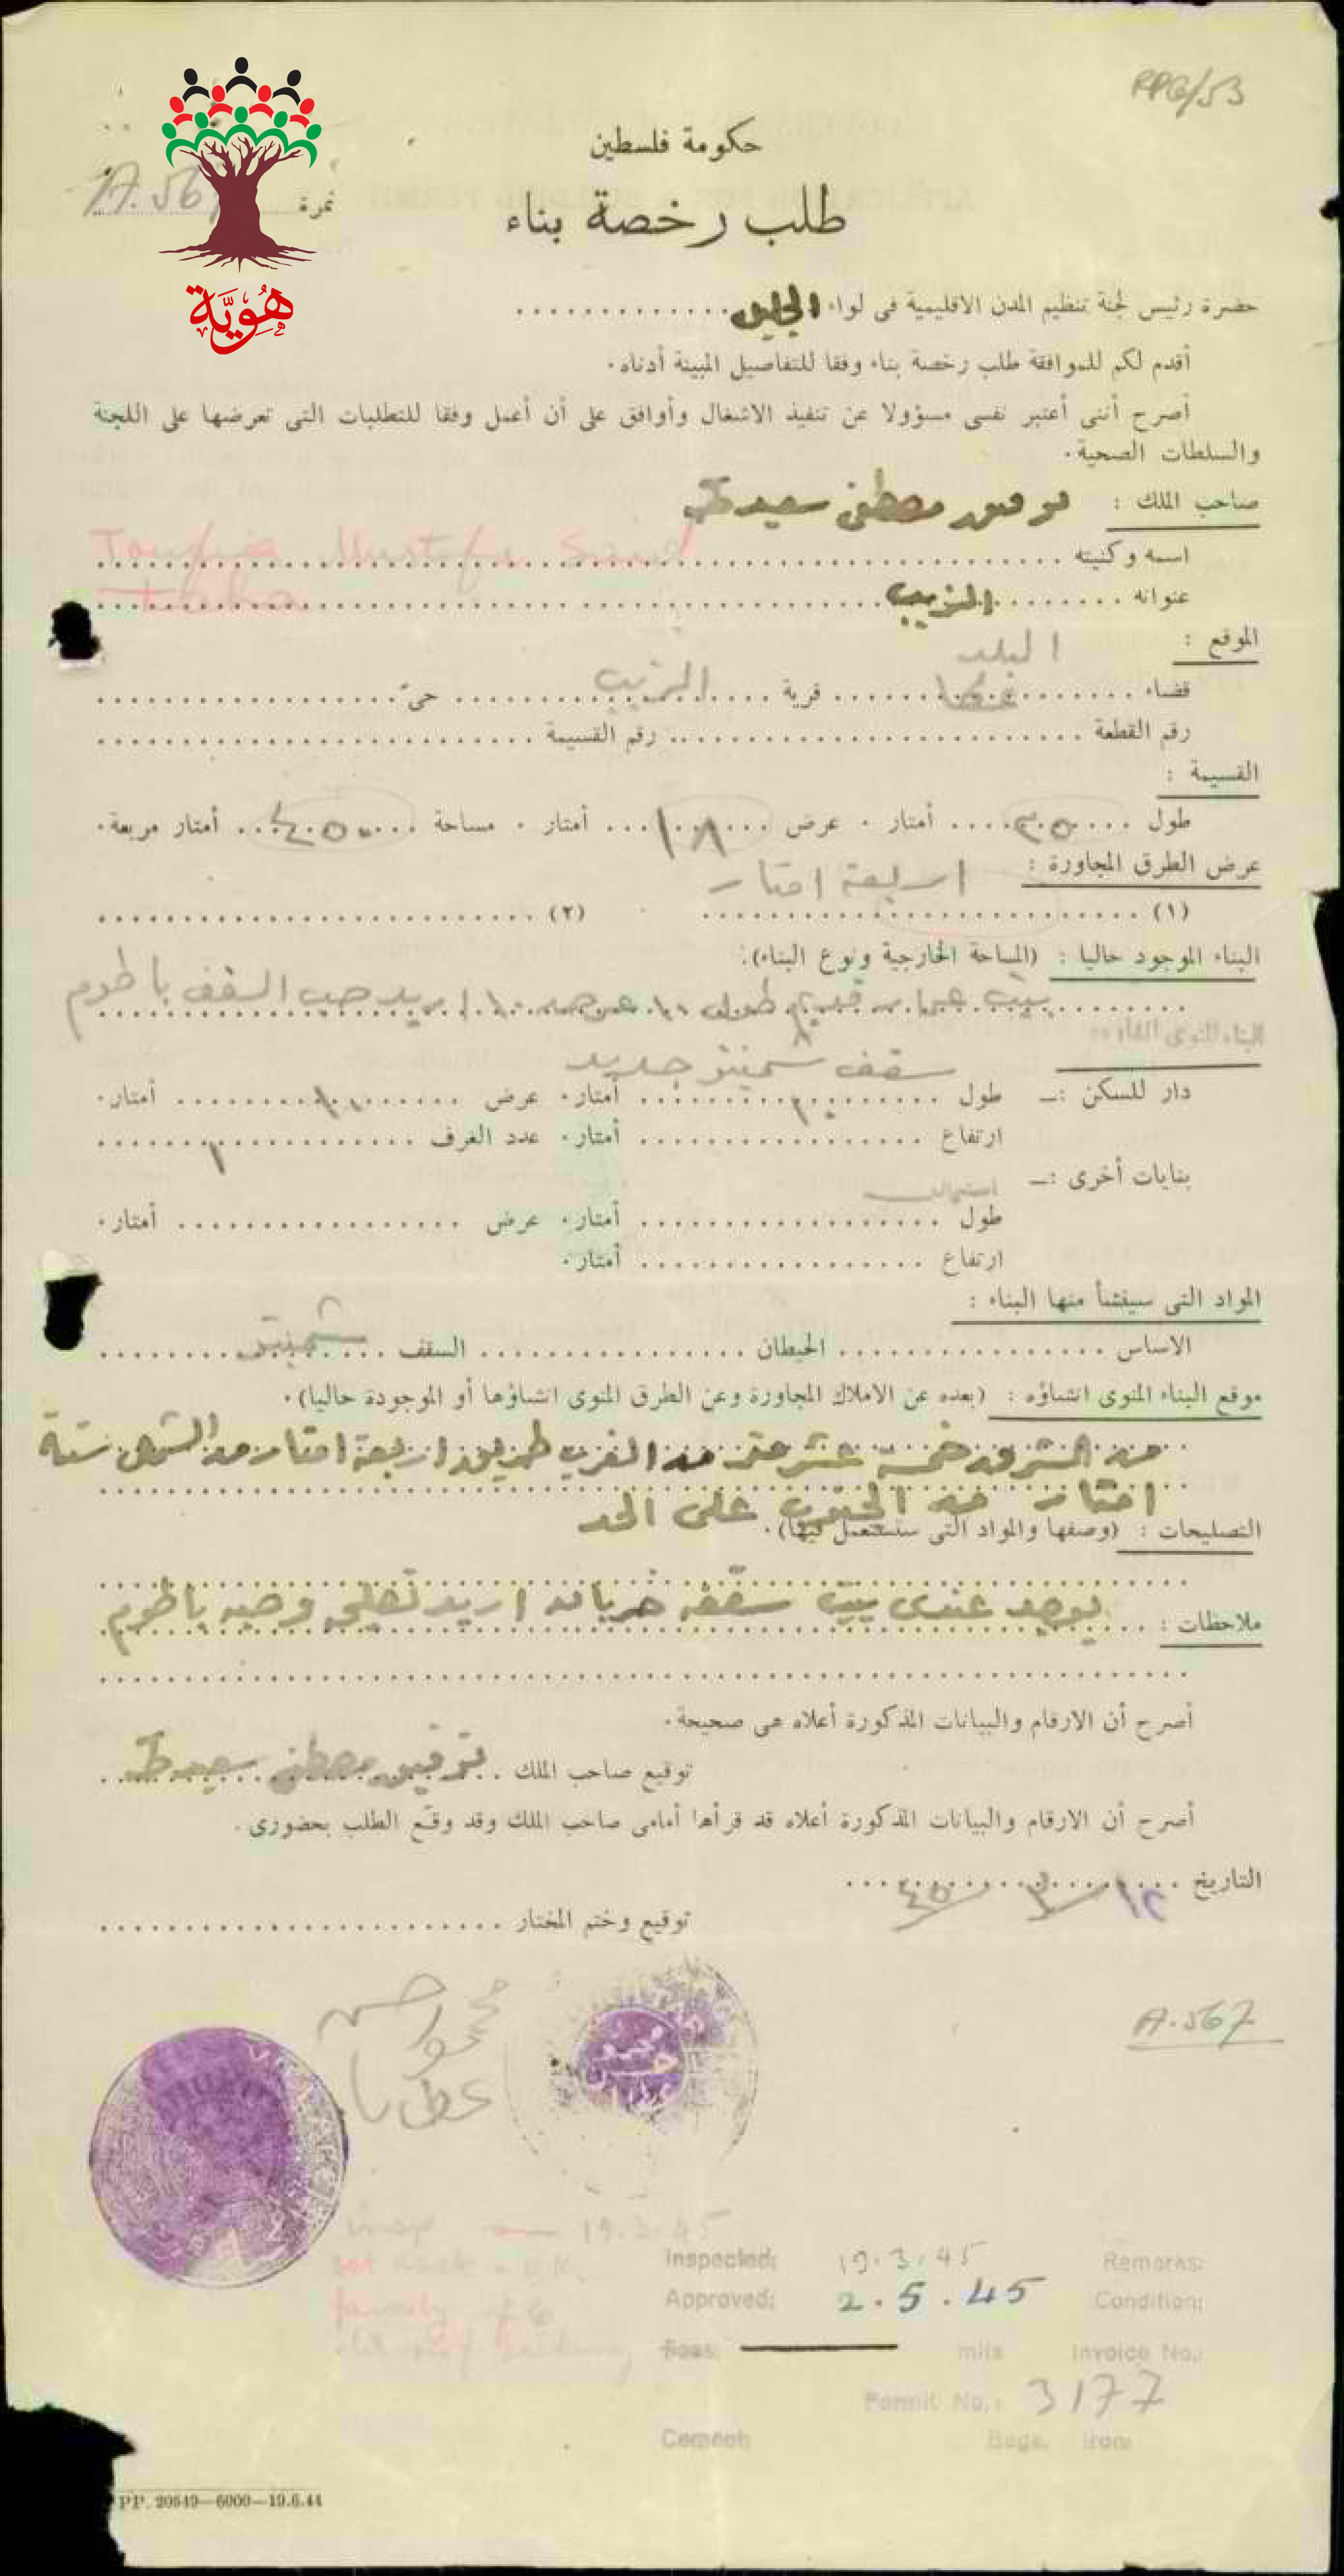 RPG/53
حكومة فلسطين
نمرة A.567
طلب رخصة بناء
هُوِيَّة
حضرة رئيس لجنة تنظيم المدن الاقليمية فى لواء الجليل
أقدم لكم للموافقة طلب رخصة بناء وفقا للتفاصيل المبينة أدناه.
أصرح أننى أعتبر نفسى مسؤولا عن تنفيذ الاشغال وأوافق على أن أعمل وفقا للمتطلبات التى تعرضها على اللجنة
والسلطات الصحية.
صاحب الملك : توفيق مصطفى سعيد طه
اسمه وكنيته Taufic Mustafa Said
عنوانه الزيب Taha
الموقع : البلد
قضاء عكا قرية الزيب حىّ
رقم القطعة رقم القسيمة
القسيمة :
طول ٢٥ أمتار . عرض ١٨ أمتار . مساحة ٤٥٠ أمتار مربعة.
عرض الطرق المجاورة : اربعة امتار
(١) (٢)
البناء الموجود حاليا : (المساحة الخارجية ونوع البناء):
بيت عمار قديم طول ١٠ عرض ١٠ اريد صب السقف باطوم
سقف شمينتو جديد
دار للسكن :ــ طول ١٠ أمتار. عرض ١٠ أمتار.
ارتفاع أمتار. عدد الغرف ١
بنايات أخرى :ــ
طول أمتار. عرض أمتار.
ارتفاع أمتار.
المواد التى سينشأ منها البناء :
الاساس الحيطان السقف شمينتو
موقع البناء المنوى انشاؤه : (بعده عن الاملاك المجاورة وعن الطرق المنوى انشاؤها أو الموجودة حاليا).
من الشرق خمسة عشر متر من الغرب طريق اربعة امتار من الشمال ستة
امتار من الجنوب على الحد
التصليحات : (وصفها والمواد التى ستستعمل فيها).
ملاحظات : يوجد عندى بيت سقفه خربان اريد تصليحه وصبه باطوم
أصرح أن الارقام والبيانات المذكورة أعلاه هى صحيحة.
توقيع صاحب الملك توفيق مصطفى سعيد طه
أصرح أن الارقام والبيانات المذكورة أعلاه قد قرأها أمامى صاحب الملك وقد وقّع الطلب بحضورى .
التاريخ ١٢ / ٣ / ٤٥
توقيع وختم المختار
محمود حسن
عطايا
A.567
19.3.45
Inspected: 19.3.45 Remarks:
Approved: 2.5.45 Condition:
Fees: mils Invoice No.:
Permit No.: 3177
Cement: Bags. Iron:
PP. 20549—6000—19.6.44